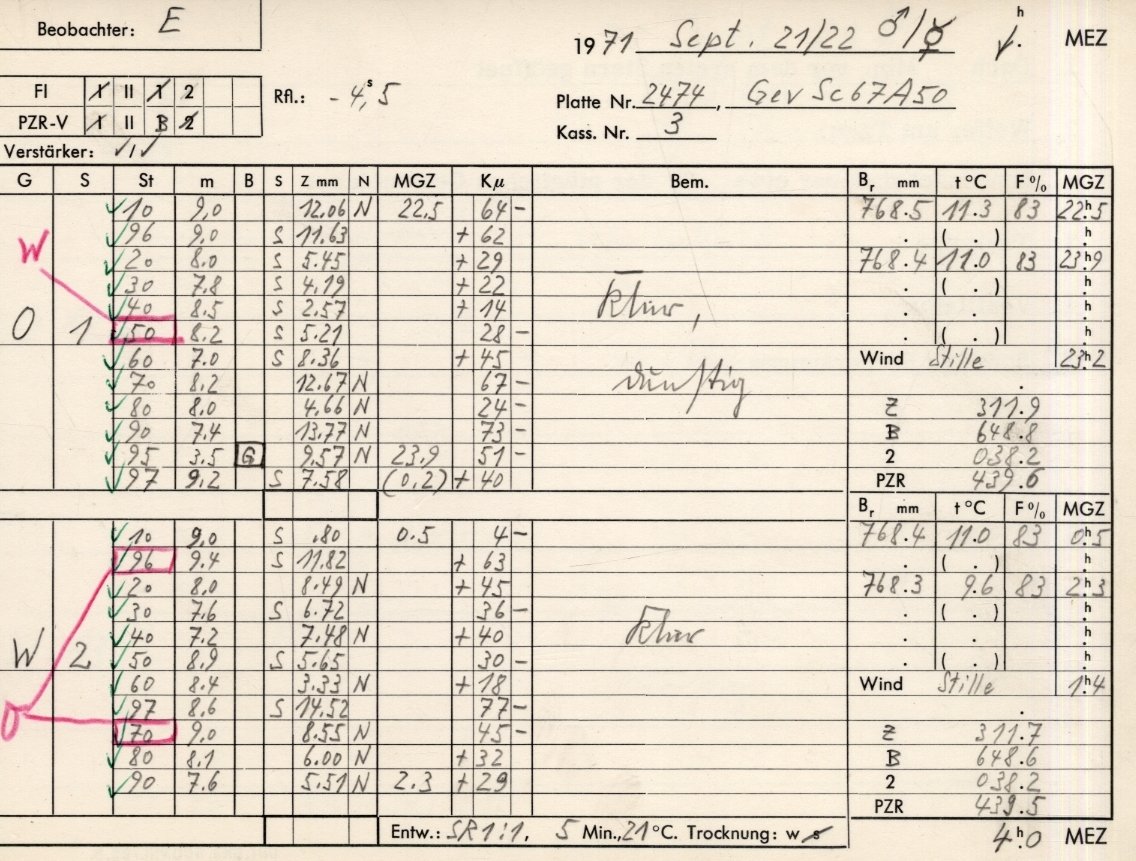 Beobachter: E
1971 Sept. 21/22 ♂/☿ h . MEZ
FI I II 1 2
PZR-V I II B 2
Rfl.: - 4,ˢ5
Platte Nr. 2474, Gev Sc 67 A 50
Kass. Nr. 3
Verstärker: √ I √
G S St m B S Z mm N MGZ Kμ Bem. Br mm t °C F % MGZ
10 9,0 12.06 N 22,5 64 - 768.5 11.3 83 22h5
96 9.0 S 11.63 + 62 . ( . ) h
W 20 8.0 S 5.45 + 29 768.4 11.0 83 23h9
30 7.8 S 4.19 + 22 . ( . ) h
40 8.5 S 2.57 + 14 klar, . . h
0 1 50 8.2 S 5.21 28 - . ( . ) h
60 7.0 S 8.36 + 45 Wind Stille 23h2
70 8.2 12.67 N 67 - dunstig .
80 8.0 4.66 N 24 - Z 311.9
90 7.4 13.77 N 73 - B 648.8
95 3.5 G 9.57 N 23.9 51 - 2 038.2
97 9.2 S 7.58 (0.2) + 40 PZR 439.6
Br mm t °C F % MGZ
10 9,0 S .80 0.5 4 - 768.4 11.0 83 0h5
96 9.4 S 11.82 + 63 . ( . ) h
20 8.0 8.49 N + 45 768.3 9.6 83 2h3
30 7.6 S 6.72 36 - . ( . ) h
40 7.2 7.48 N + 40 klar . . h
W 2 50 8.9 S 5.65 30 - . ( . ) h
60 8.4 3.33 N + 18 Wind Stille 1h4
0 97 8.6 S 14.52 77 - .
70 9.0 8.55 N 45 - Z 311.7
80 8.1 6.00 N + 32 B 648.6
90 7.6 5.51 N 2.3 + 29 2 038.2
PZR 439.5
Entw.: SR 1:1, 5 Min., 21 °C. Trocknung: w s 4h0 MEZ